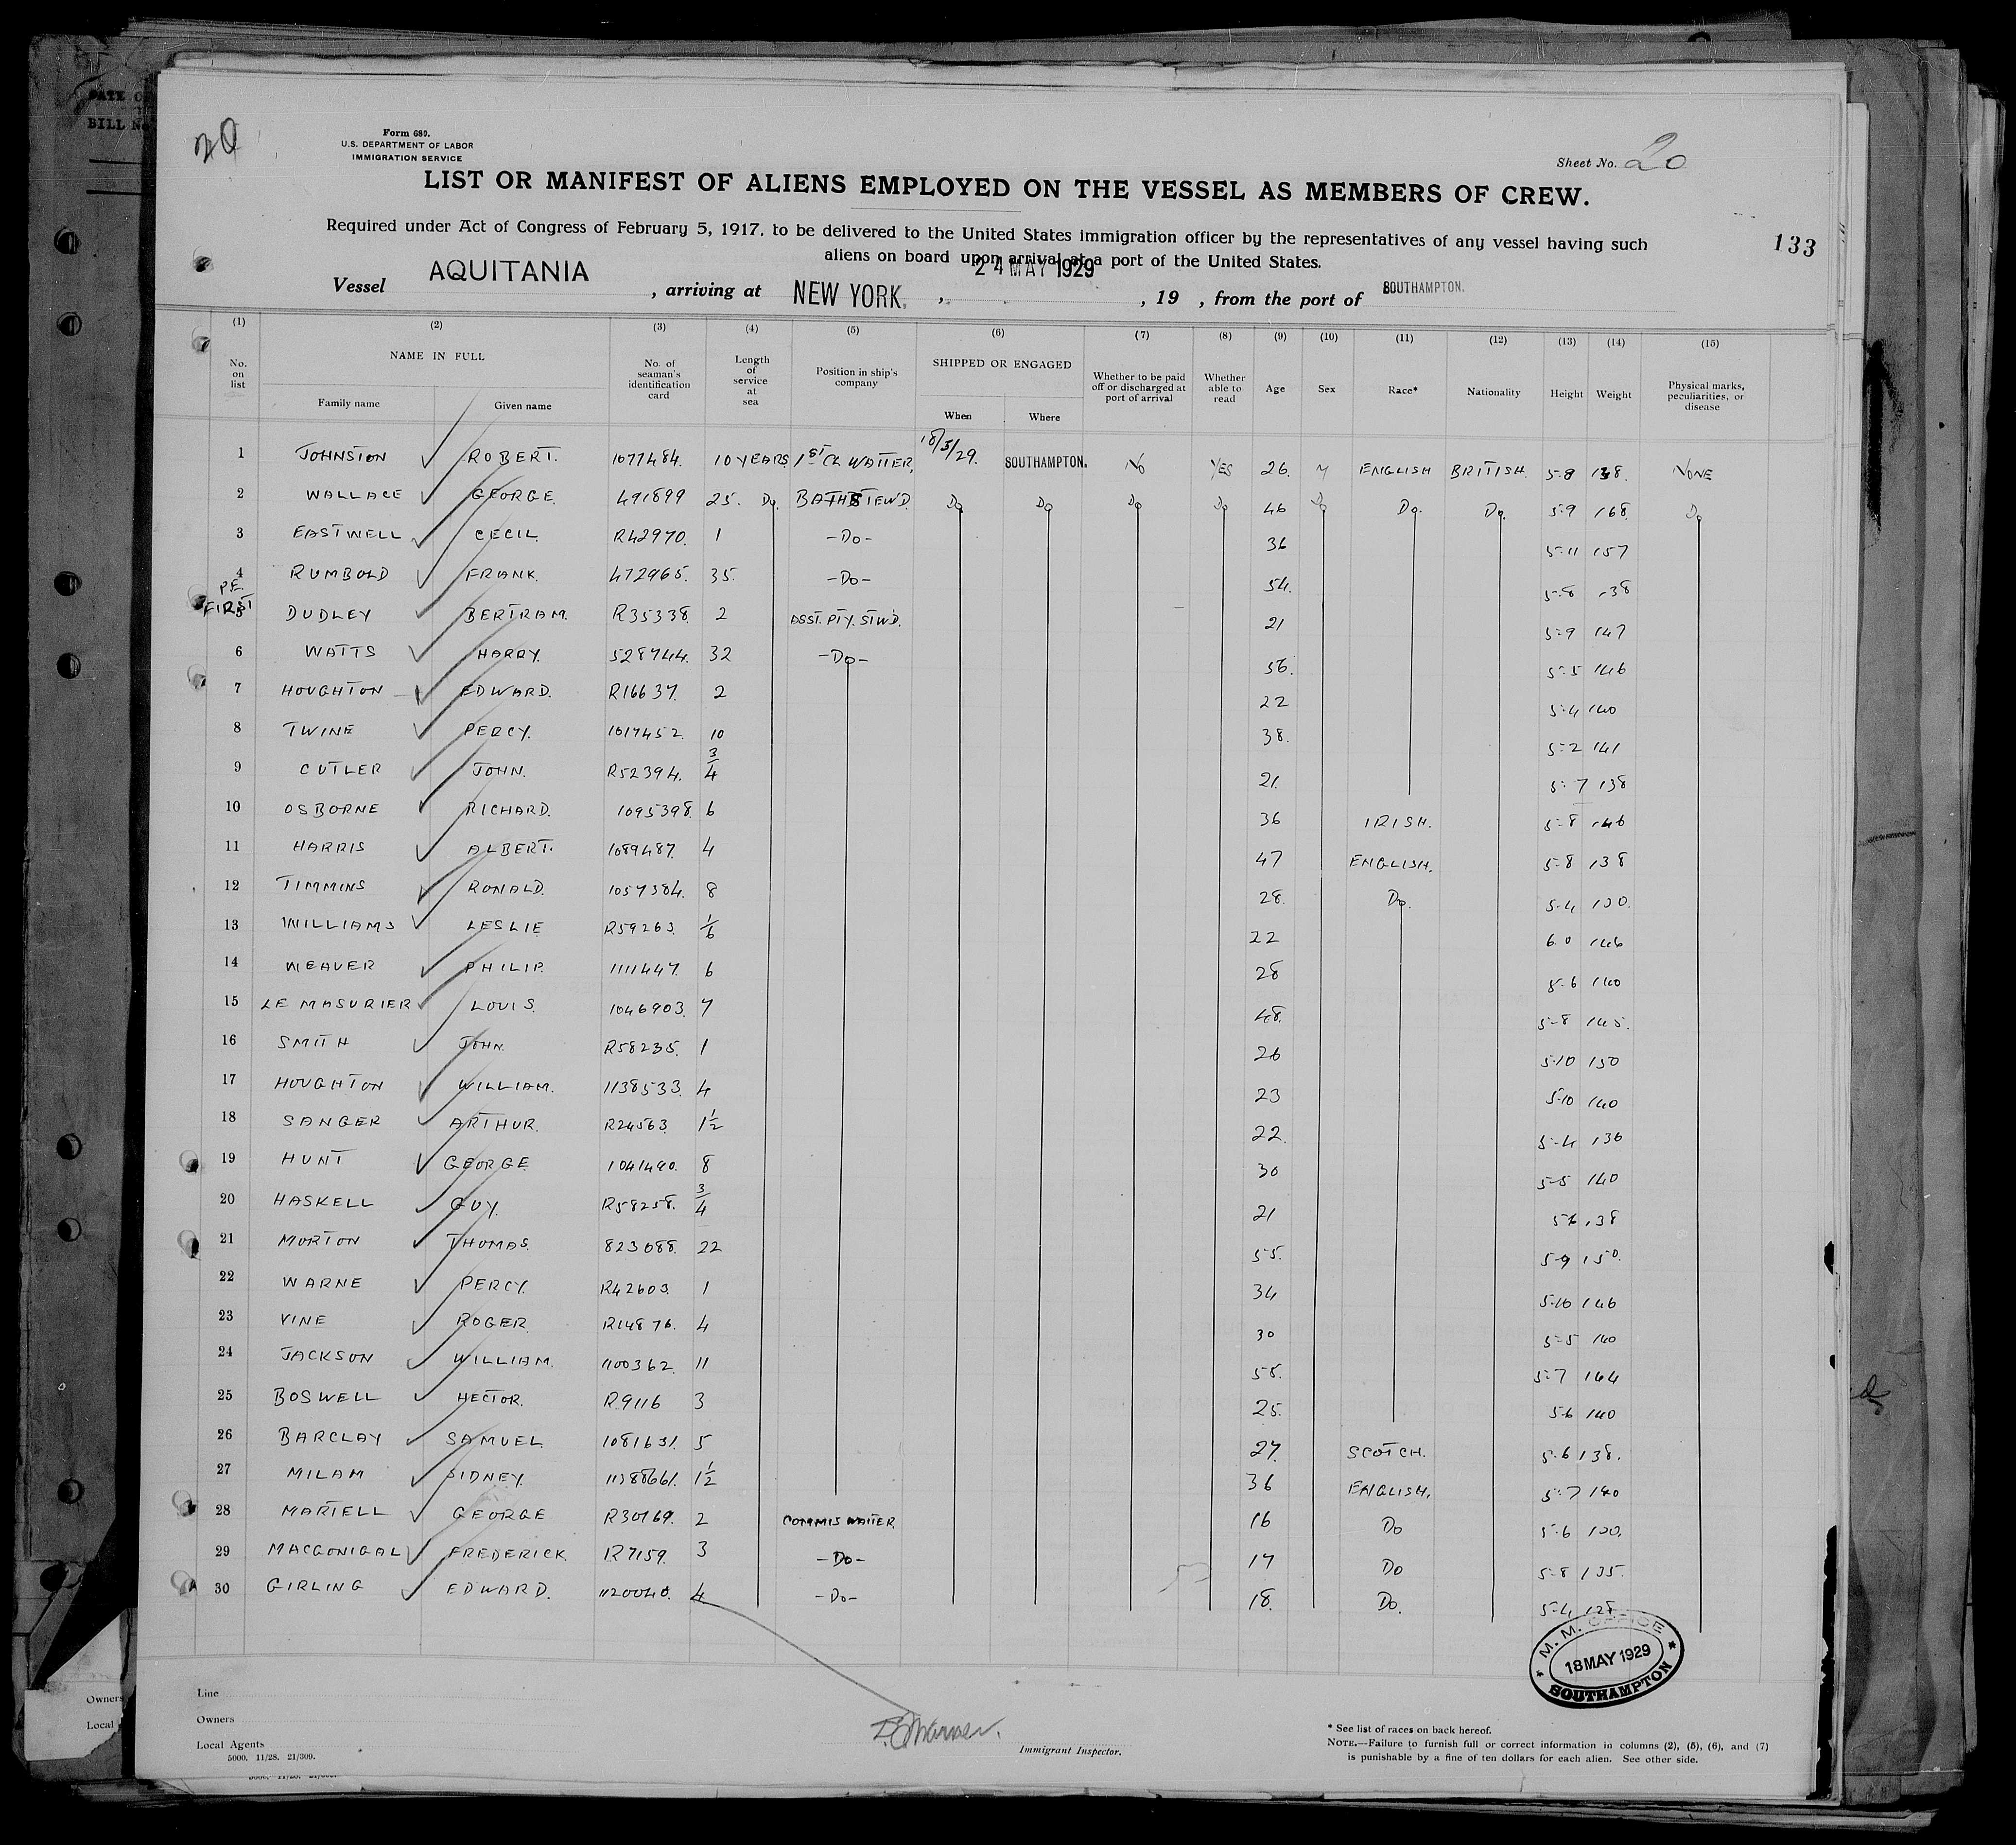 DATE O
BILL No
20
Form 680.
U.S. DEPARTMENT OF LABOR
IMMIGRATION SERVICE
Sheet No. 20
LIST OR MANIFEST OF ALIENS EMPLOYED ON THE VESSEL AS MEMBERS OF CREW.
Required under Act of Congress of February 5, 1917, to be delivered to the United States immigration officer by the representatives of any vessel having such
aliens on board upon arrival at a port of the United States.
133
24 MAY 1929
Vessel AQUITANIA, arriving at NEW YORK, , 19 , from the port of SOUTHAMPTON.
(1) (2) (3) (4) (5) (6) (7) (8) (9) (10) (11) (12) (13) (14) (15)
No. on list NAME IN FULL No. of seaman's identification card Length of service at sea Position in ship's company SHIPPED OR ENGAGED Whether to be paid off or discharged at port of arrival Whether able to read Age Sex Race* Nationality Height Weight Physical marks, peculiarities, or disease
Family name Given name When Where
1 JOHNSTON ROBERT. 1077484. 10 YEARS 1ST CL WAITER, 18/5/29. SOUTHAMPTON. No YES 26. M ENGLISH BRITISH. 5-8 138. NONE
2 WALLACE GEORGE. 491899 25. Do. BATH STEWD. Do Do Do Do 46 Do Do. Do. 5-9 168. Do
3 EASTWELL CECIL. R42970. 1 -Do- 36 5-11 157
4 RUMBOLD FRANK. 472965. 35. -Do- 54. 5-8 138
P.E. FIRST
5 DUDLEY BERTRAM. R35338. 2 ASST. PTY. STWD. 21 5-9 147
6 WATTS HARRY. 528744. 32 -Do- 56. 5-5 146
7 HOUGHTON EDWARD. R16637. 2 22 5-4 140
8 TWINE PERCY. 1017452. 10 38. 5-2 141
9 CUTLER JOHN. R52394. 3/4 21. 5-7 138
10 OSBORNE RICHARD. 1095398. 6 36 IRISH. 5-8 146
11 HARRIS ALBERT. 1089487. 4 47 ENGLISH. 5-8 138
12 TIMMINS RONALD. 1057384. 8 28. Do. 5-4 130.
13 WILLIAMS LESLIE R59263. 1/6 22 6.0 146
14 WEAVER PHILIP. 1111447. 6 28 5-6 140
15 LE MASURIER LOUIS. 1046903. 7 48. 5-8 145.
16 SMITH JOHN. R58235. 1 26 5-10 150
17 HOUGHTON WILLIAM. 1138533. 4 23 5-10 140
18 SANGER ARTHUR. R24563. 1 1/2 22. 5-4 136
19 HUNT GEORGE 1041490. 8 30 5-5 140
20 HASKELL GUY. R58258. 3/4 21 5-6 138
21 MORTON THOMAS. 823088. 22 55. 5-9 150.
22 WARNE PERCY. R42603. 1 34 5-10 146
23 VINE ROGER. R14876. 4 30 5-5 140
24 JACKSON WILLIAM. 1100362. 11 58. 5-7 164
25 BOSWELL HECTOR. R9116 3 25. 5-6 140
26 BARCLAY SAMUEL. 1081631. 5 27. SCOTCH. 5-6 138.
27 MILAM SIDNEY. 1 1/2 36 ENGLISH. 5-7 140
28 MARTELL GEORGE R30169. 2 COMMIS WAITER. 16 Do 5-6 120.
29 MACGONIGAL FREDERICK. R7159. 3 -Do- 17 Do 5-8 135.
30 GIRLING EDWARD. 1120040. 4 -Do- 18. Do. 5-4 128.
M. M. OFFICE
18 MAY 1929
SOUTHAMPTON
Line
Owners
Local Agents
5000. 11/28. 21/309.
Immigrant Inspector.
* See list of races on back hereof.
NOTE.—Failure to furnish full or correct information in columns (2), (5), (6), and (7)
is punishable by a fine of ten dollars for each alien. See other side.
Owners
Local